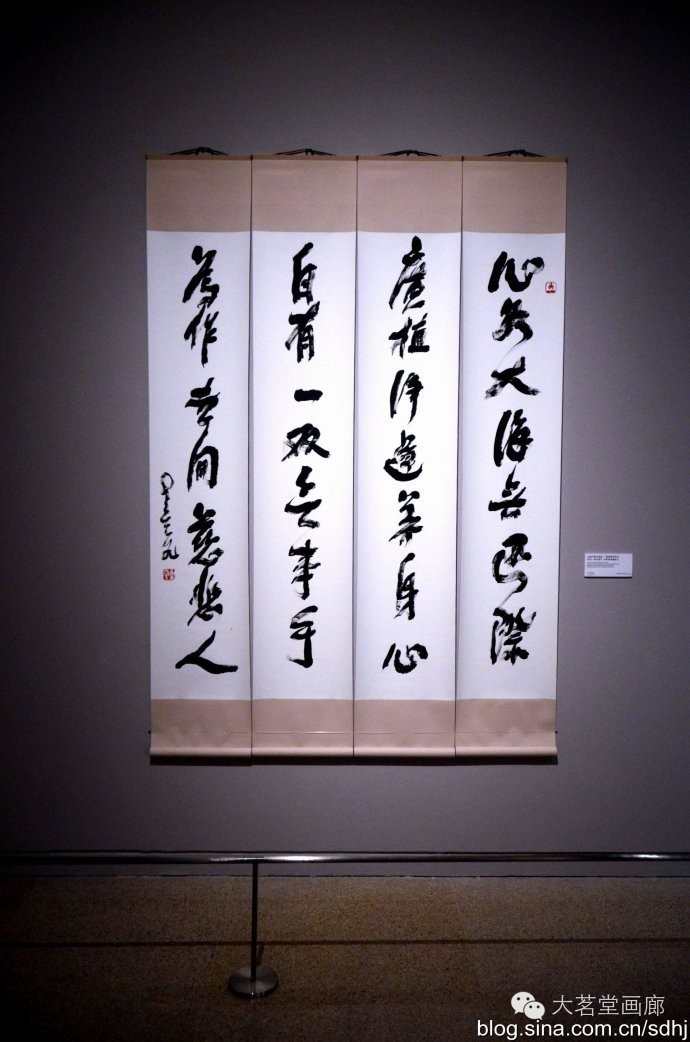 心如大海無邊際
廣植淨蓮養身心
自有一双無事手
為作世間慈悲人
大茗堂画廊
blog.sina.com.cn/sdhj